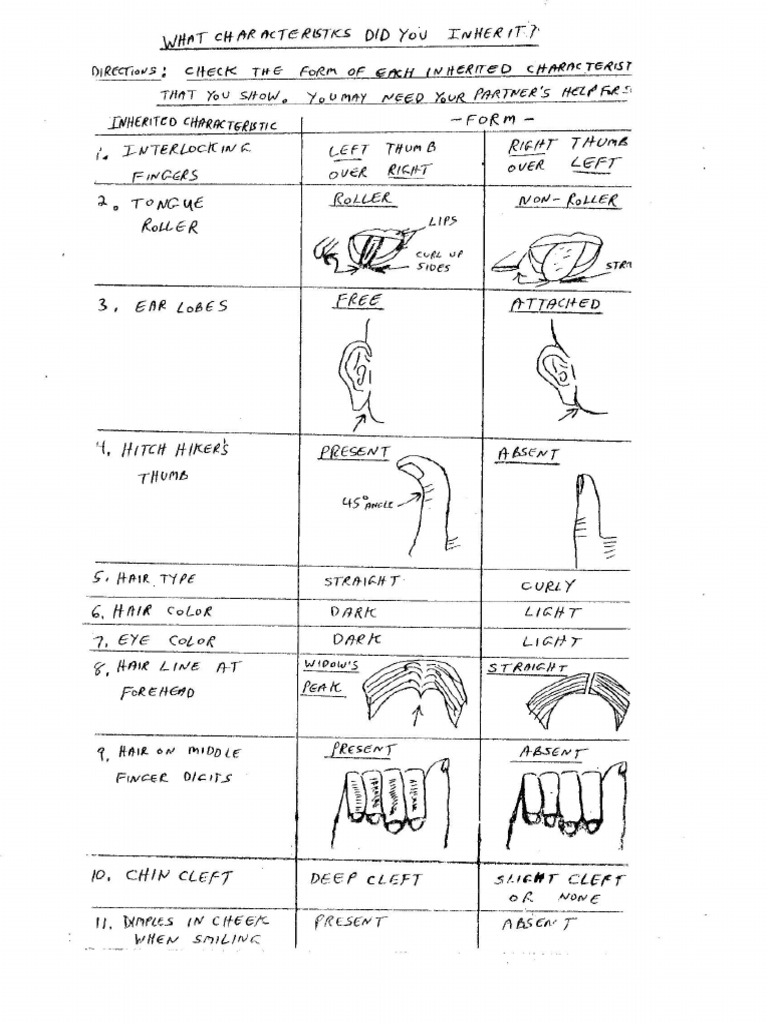 WHAT CHARACTERISTICS DID YOU INHERIT?
DIRECTIONS: CHECK THE FORM OF EACH INHERITED CHARACTERIST
THAT YOU SHOW. YOU MAY NEED YOUR PARTNER'S HELP FOR S
INHERITED CHARACTERISTIC - FORM -
1. INTERLOCKING LEFT THUMB RIGHT THUMB
FINGERS OVER RIGHT OVER LEFT
2. TONGUE ROLLER NON-ROLLER
ROLLER
LIPS
CURL UP
SIDES
STRA
3. EAR LOBES FREE ATTACHED
4. HITCH HIKER'S PRESENT ABSENT
THUMB
45° ANGLE
5. HAIR TYPE STRAIGHT CURLY
6. HAIR COLOR DARK LIGHT
7. EYE COLOR DARK LIGHT
8. HAIR LINE AT WIDOW'S STRAIGHT
FOREHEAD PEAK
9. HAIR ON MIDDLE PRESENT ABSENT
FINGER DIGITS
10. CHIN CLEFT DEEP CLEFT SLIGHT CLEFT
OR NONE
11. DIMPLES IN CHEEK PRESENT ABSENT
WHEN SMILING